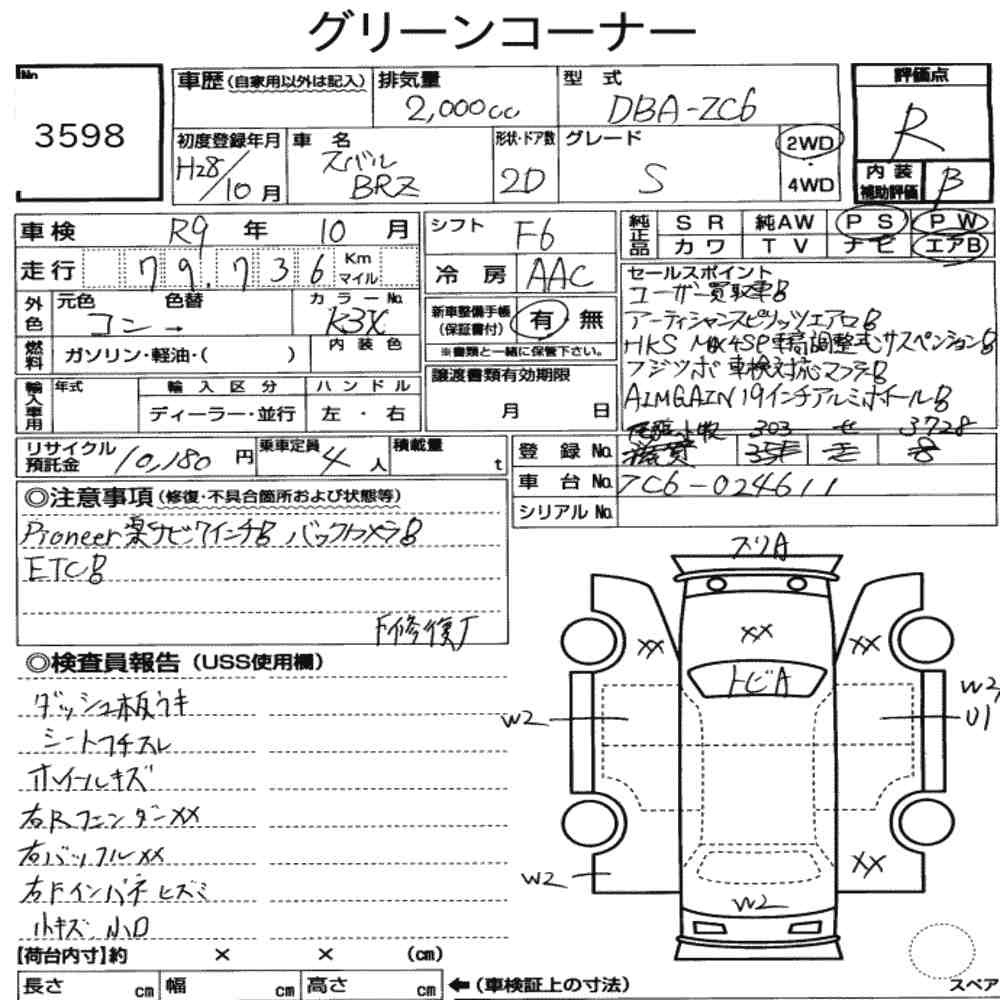 グリーンコーナー
No. 3598
車歴(自家用以外は記入) 排気量 2,000cc 型式 DBA-ZC6
評価点 R
初度登録年月 H28/10月 車名 スバル BRZ 形状・ドア数 2D グレード S 2WD・4WD
内装補助評価 B
車検 R9年 10月
走行 79,736 Km マイル
外色 元色 コン→ 色替 カラーNo. K3X
燃料 ガソリン・軽油・( ) 内装色
輸入車用 年式 輸入区分 ディーラー・並行 ハンドル 左・右
シフト F6
冷房 AAC
新車整備手帳(保証書付) 有 無
※書類と一緒に保管下さい。
譲渡書類有効期限 月 日
純正品 SR 純AW PS PW
カワ TV ナビ エアB
セールスポイント
ユーザー買取車
アーティシャンスピリッツエアロ
HKS MAX4SP車高調整式サスペンション
フジツボ 車検対応マフラー
AIMGAIN 19インチアルミホイール
リサイクル預託金 10,180円 乗車定員 4人 積載量 t
303 せ 3728
登録No. 滋賀
車台No. ZC6-024611
シリアルNo.
◎注意事項(修復・不具合箇所および状態等)
Pioneer楽ナビ7インチ バックカメラ
ETC
F修復了
◎検査員報告(USS使用欄)
ダッシュ板ウキ
シートフチスレ
ホイールキズ
右Rフェンダーxx
右バッフルxx
右Fインパネヒズミ
小キズ、小凹
【荷台内寸】約 × × (cm)
長さ cm 幅 cm 高さ cm ←(車検証上の寸法)
スリA
xx xx xx
トビA
W2 W2 U1
xx
W2 W2
スペア